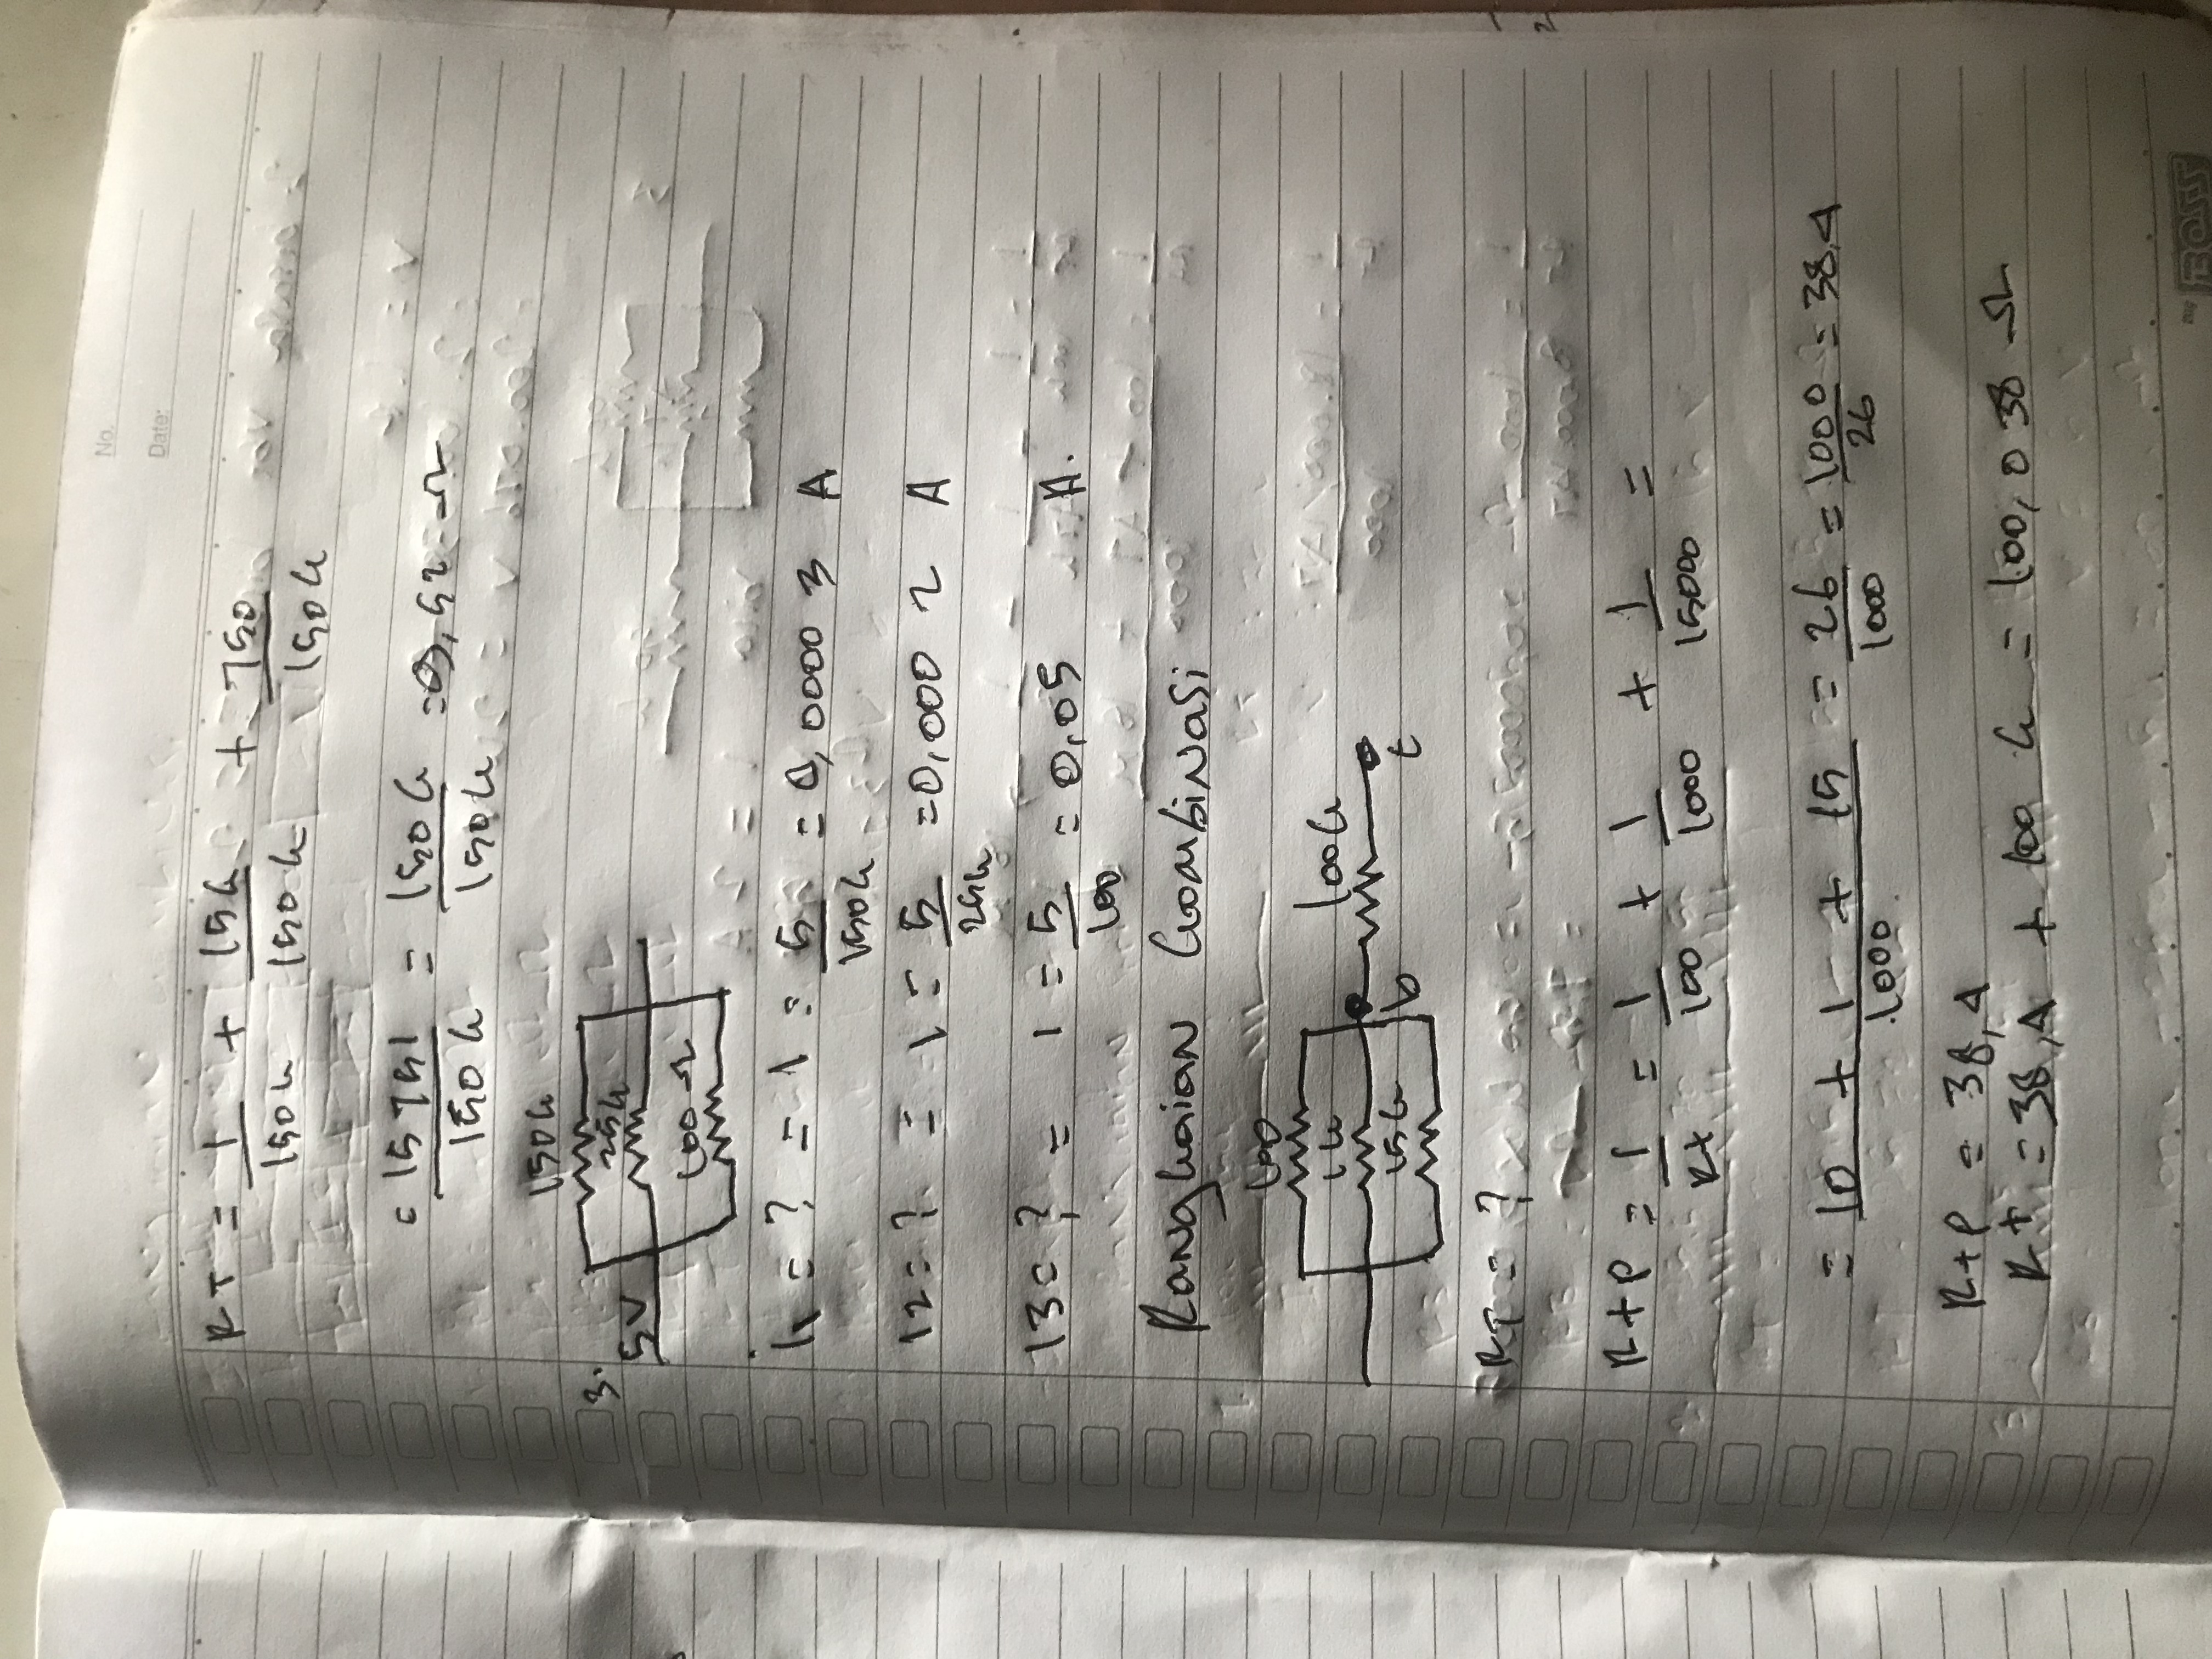 No.
Date:
RT = 1/150k + 15k/150k + 750/150k
= 15751/150k = 150k/150k = 9,52 Ω
3.
150k
25k
5V
100 Ω
i1 = ? = I = 5/150k = 0,00003 A
I2 = ? = I = 5/25k = 0,0002 A
I3 = ? = I = 5/100 = 0,05 A.
Rangkaian Kombinasi
100
1k
100k
15k
b
c
RT = ?
RtP = 1/Rt = 1/100 + 1/1000 + 1/15000 =
= 10 + 1 + 15/1000 = 26/1000 = 1000/26 = 38,4
RtP = 38,4
Rt = 38,4 + 100 k = 100,038 Ω